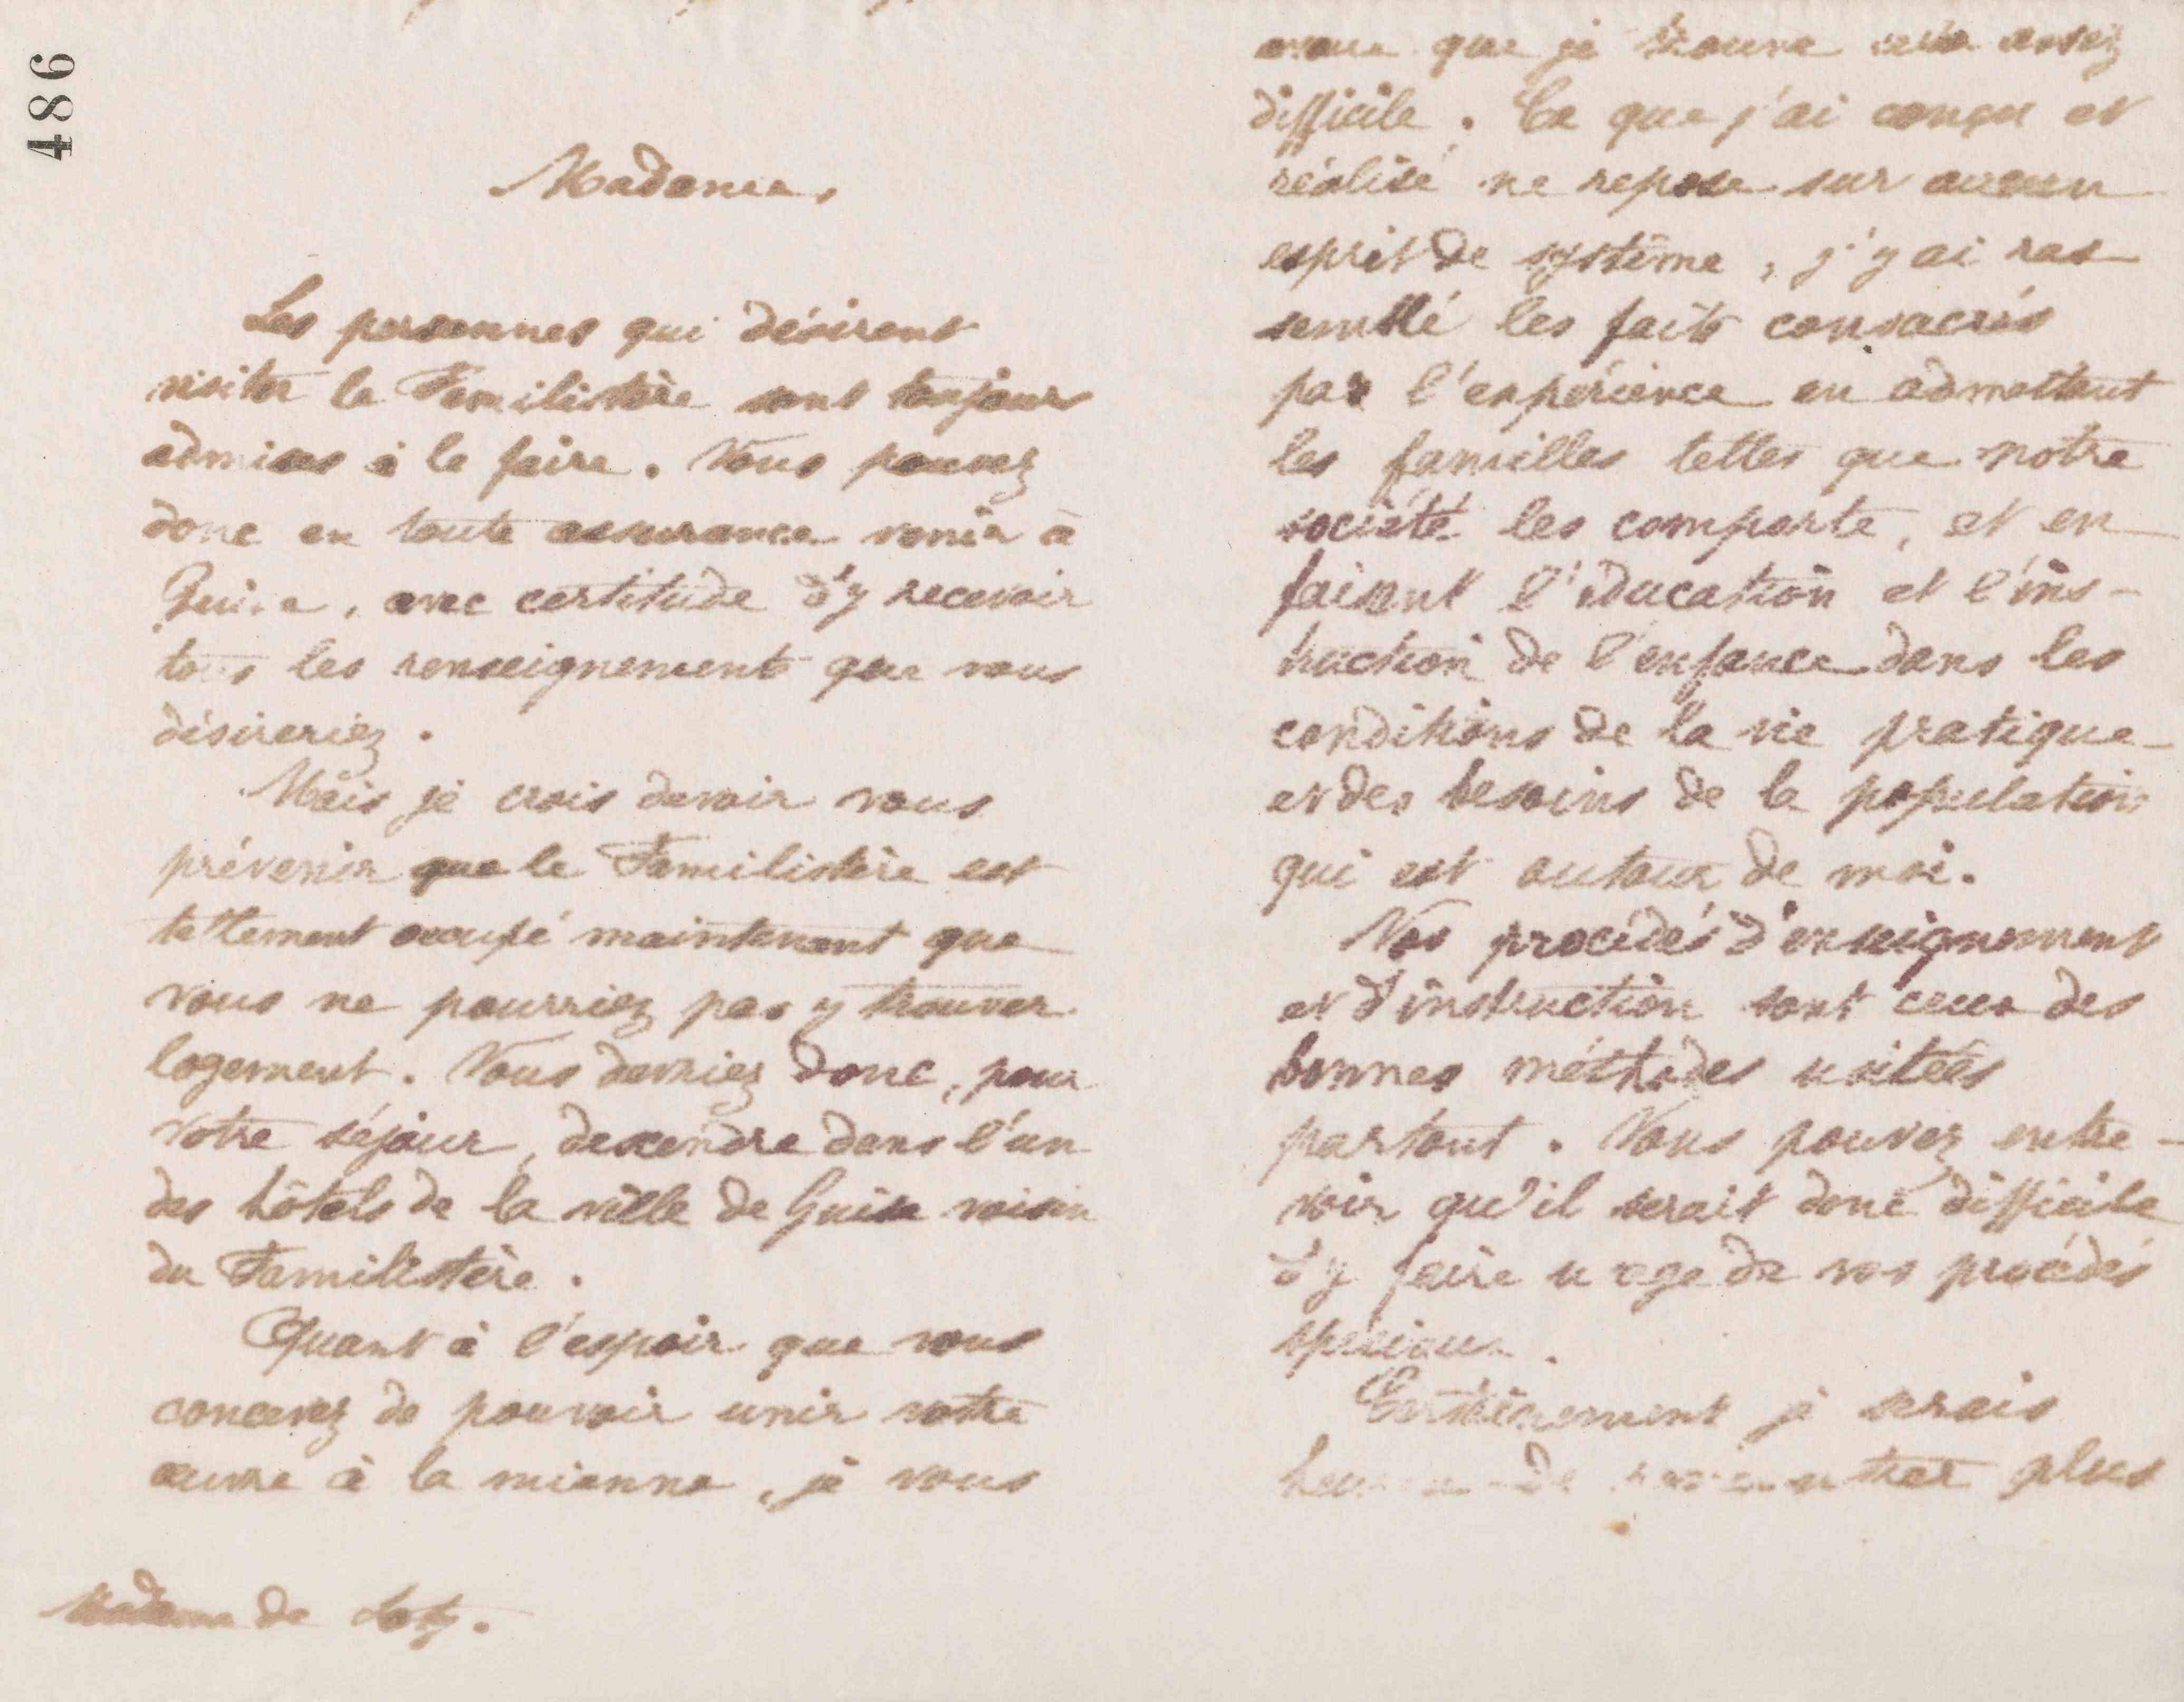 486
Madame,
Les personnes qui désirent
visiter le Familistère sont toujours
admises à le faire. Vous pouvez
donc en toute assurance venir à
Guise, avec certitude d'y recevoir
tous les renseignements que vous
désireriez.
Mais je crois devoir vous
prévenir que le Familistère est
tellement occupé maintenant que
vous ne pourriez pas y trouver
logement. Vous devriez donc, pour
votre séjour, descendre dans l'un
des hôtels de la ville de Guise voisin
du Familistère.
Quant à l'espoir que vous
concevez de pouvoir unir votre
œuvre à la mienne, je vous
Madame de
avoue que je trouve cela assez
difficile. Ce que j'ai conçu et
réalisé ne repose sur aucun
esprit de système, j'y ai ras
semblé les faits consacrés
par l'expérience en admettant
les familles telles que notre
société les comporte, et en
faisant l'éducation et l'ins-
truction de l'enfance dans les
conditions de la vie pratique
et des besoins de la population
qui est autour de moi.
Nos procédés d'enseignement
et d'instruction sont ceux des
bonnes méthodes usitées
partout. Vous pouvez entre-
voir qu'il serait donc difficile
d'y faire usage de vos procédés
spéciaux.
Certainement je serais
de rencontrer plus